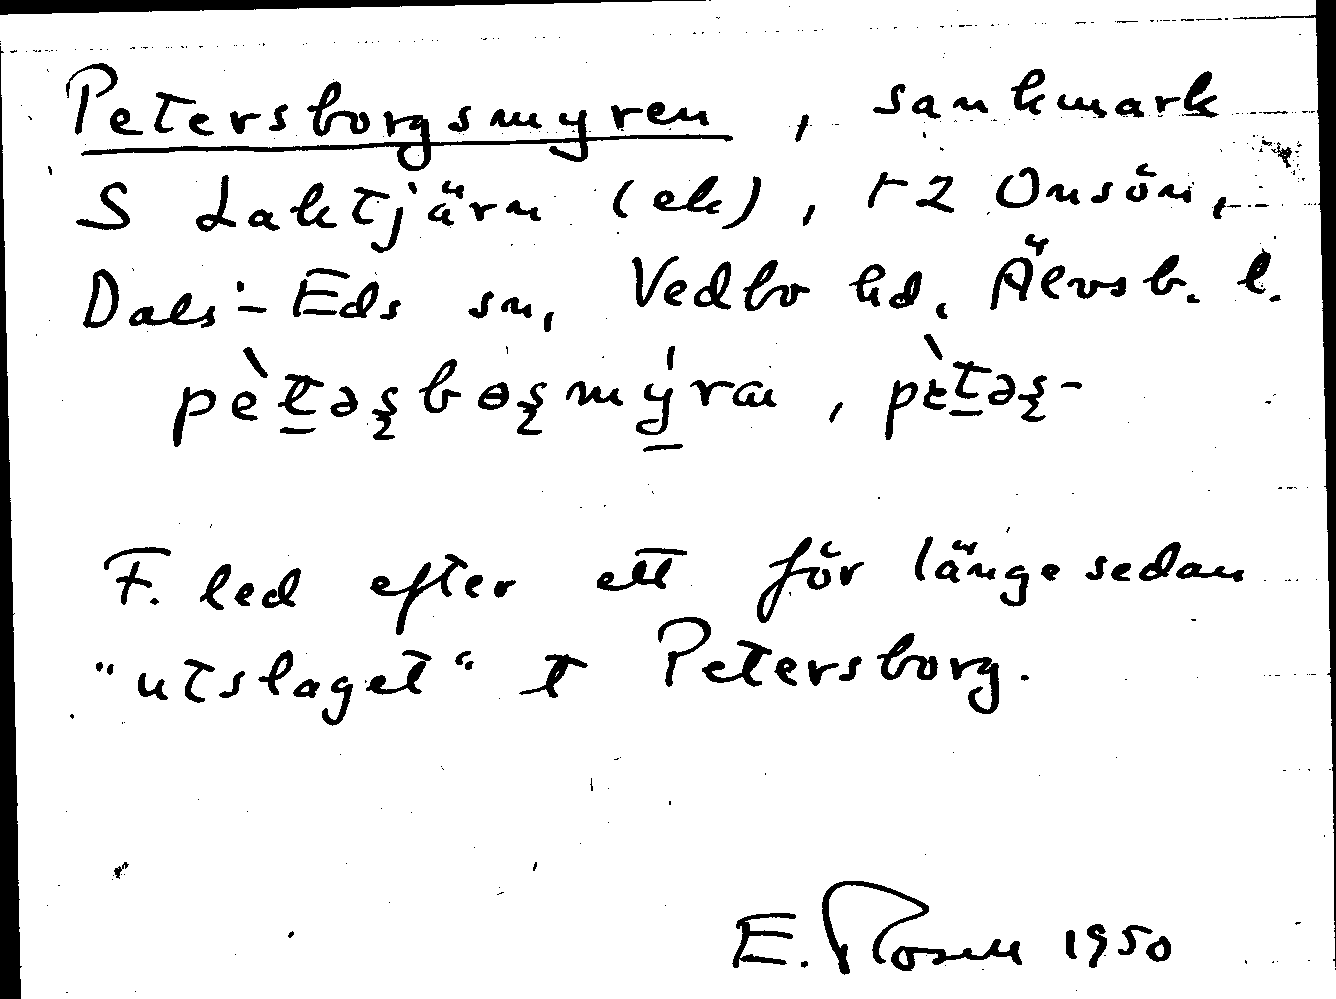 Petersborgsmyren, sankmark
S Laktjärn (ek), +2 Onsön,
Dals-Eds sn, Vedbo hd, Älvsb. l.
pèt̲əʂbɵʂmý̲ra, pèt̲əʂ-
F. led efter ett för länge sedan
"utslaget" t Petersborg.
E. Rosell 1950